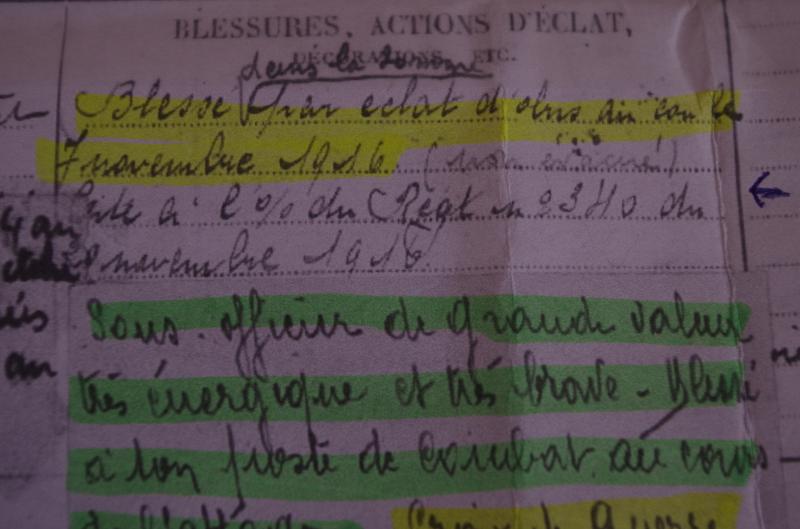 BLESSURES, ACTIONS D'ÉCLAT,
DÉCORATIONS, ETC.
dans la Somme
Blessé par éclat d'obus au cou le
7 novembre 1916 (non évacué)
Cité à l'o/ du Régt n 2340 du
novembre 1916
Sous-officier de grande valeur
très énergique et très brave - Blessé
à son poste de combat au cours
de l'attaque Croix de Guerre